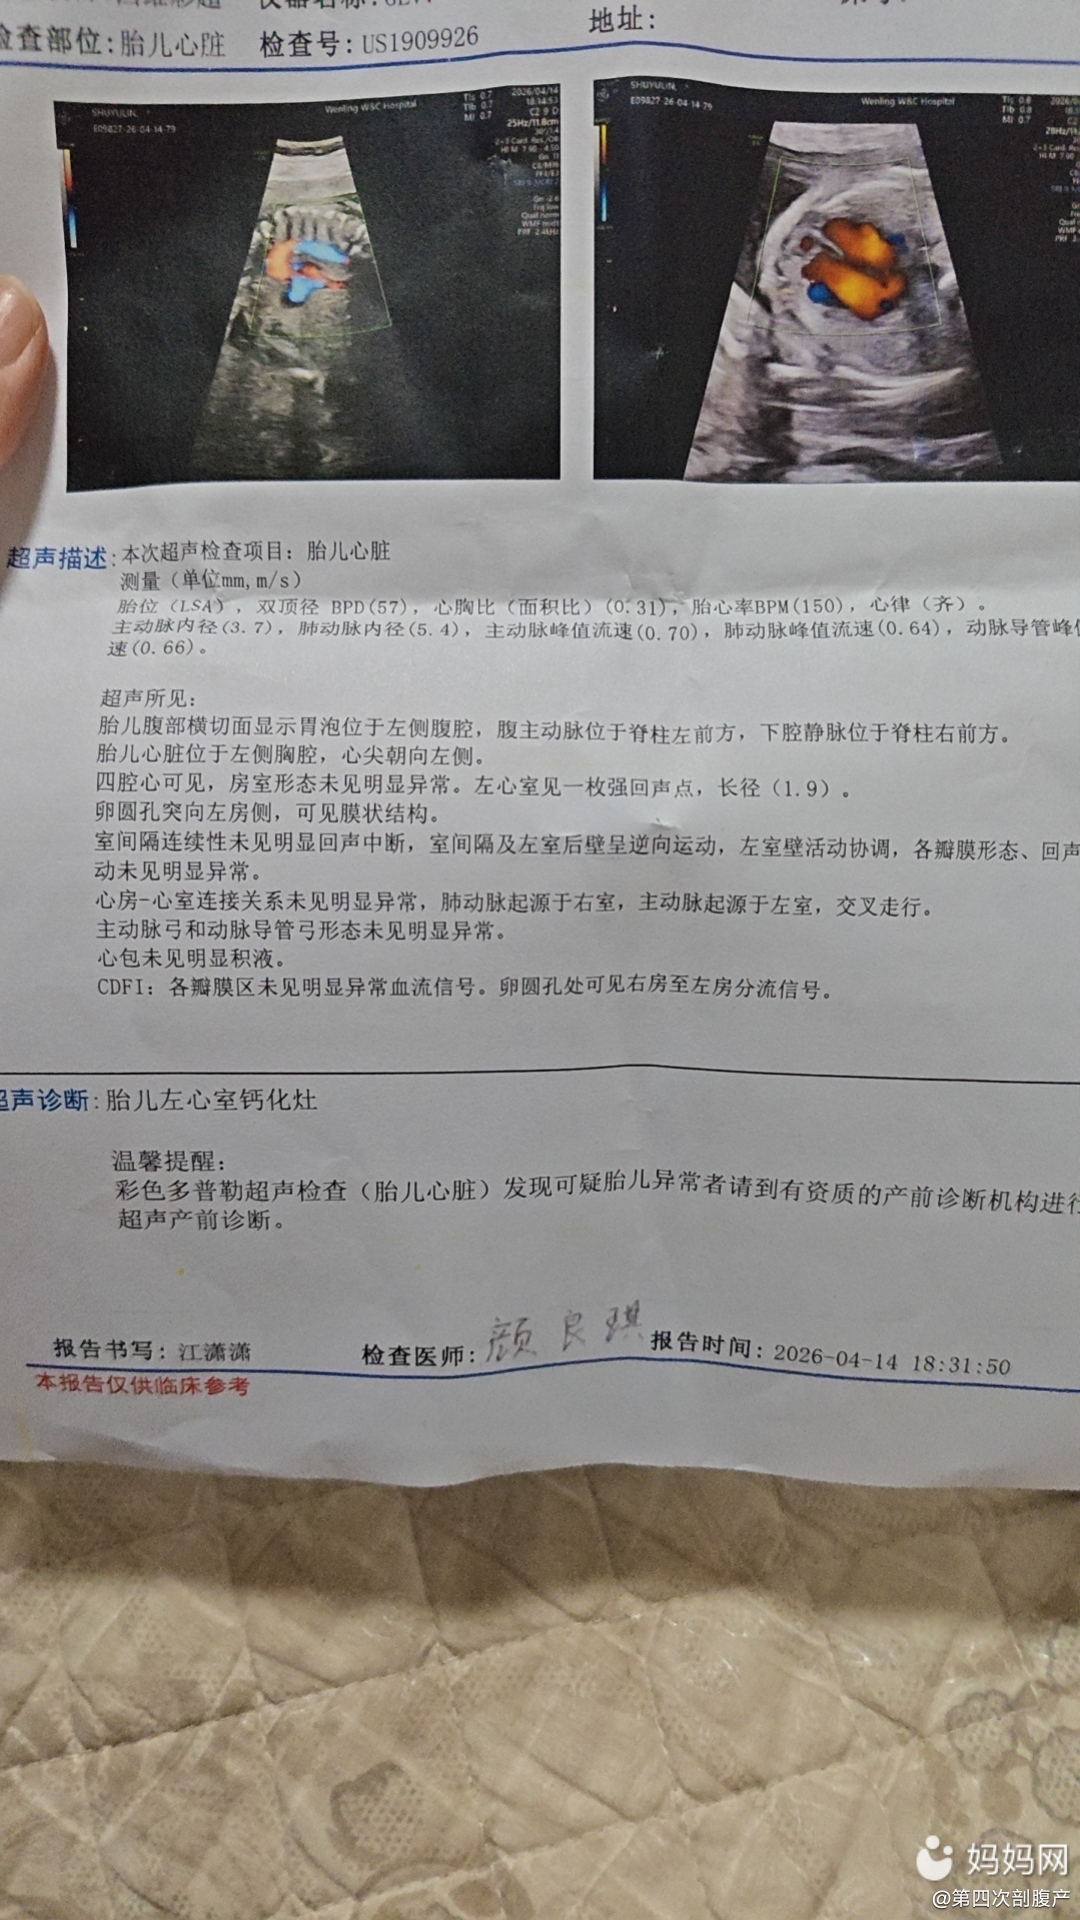 检查部位：胎儿心脏 检查号：US1909926 地址：
SHUYULIN,
E09827-26-04-14-79
Wenling W&C Hospital
TIs 0.7
TIb 0.7
MI 0.7
2026/04/14
C2 9 D
25Hz/11.8cm
SHUYULIN,
E09827-26-04-14-79
Wenling W&C Hospital
TIs 0.8
TIb 0.8
MI 0.7
超声描述：本次超声检查项目：胎儿心脏
测量（单位mm,m/s）
胎位（LSA），双顶径 BPD(57)，心胸比（面积比）(0.31)，胎心率BPM(150)，心律（齐）。
主动脉内径(3.7)，肺动脉内径(5.4)，主动脉峰值流速(0.70)，肺动脉峰值流速(0.64)，动脉导管峰
速(0.66)。
超声所见：
胎儿腹部横切面显示胃泡位于左侧腹腔，腹主动脉位于脊柱左前方，下腔静脉位于脊柱右前方。
胎儿心脏位于左侧胸腔，心尖朝向左侧。
四腔心可见，房室形态未见明显异常。左心室见一枚强回声点，长径（1.9）。
卵圆孔突向左房侧，可见膜状结构。
室间隔连续性未见明显回声中断，室间隔及左室后壁呈逆向运动，左室壁活动协调，各瓣膜形态、回声
动未见明显异常。
心房-心室连接关系未见明显异常，肺动脉起源于右室，主动脉起源于左室，交叉走行。
主动脉弓和动脉导管弓形态未见明显异常。
心包未见明显积液。
CDFI：各瓣膜区未见明显异常血流信号。卵圆孔处可见右房至左房分流信号。
超声诊断：胎儿左心室钙化灶
温馨提醒：
彩色多普勒超声检查（胎儿心脏）发现可疑胎儿异常者请到有资质的产前诊断机构进行
超声产前诊断。
报告书写：江潇潇 检查医师：颜良琪 报告时间：2026-04-14 18:31:50
本报告仅供临床参考
妈妈网
@第四次剖腹产